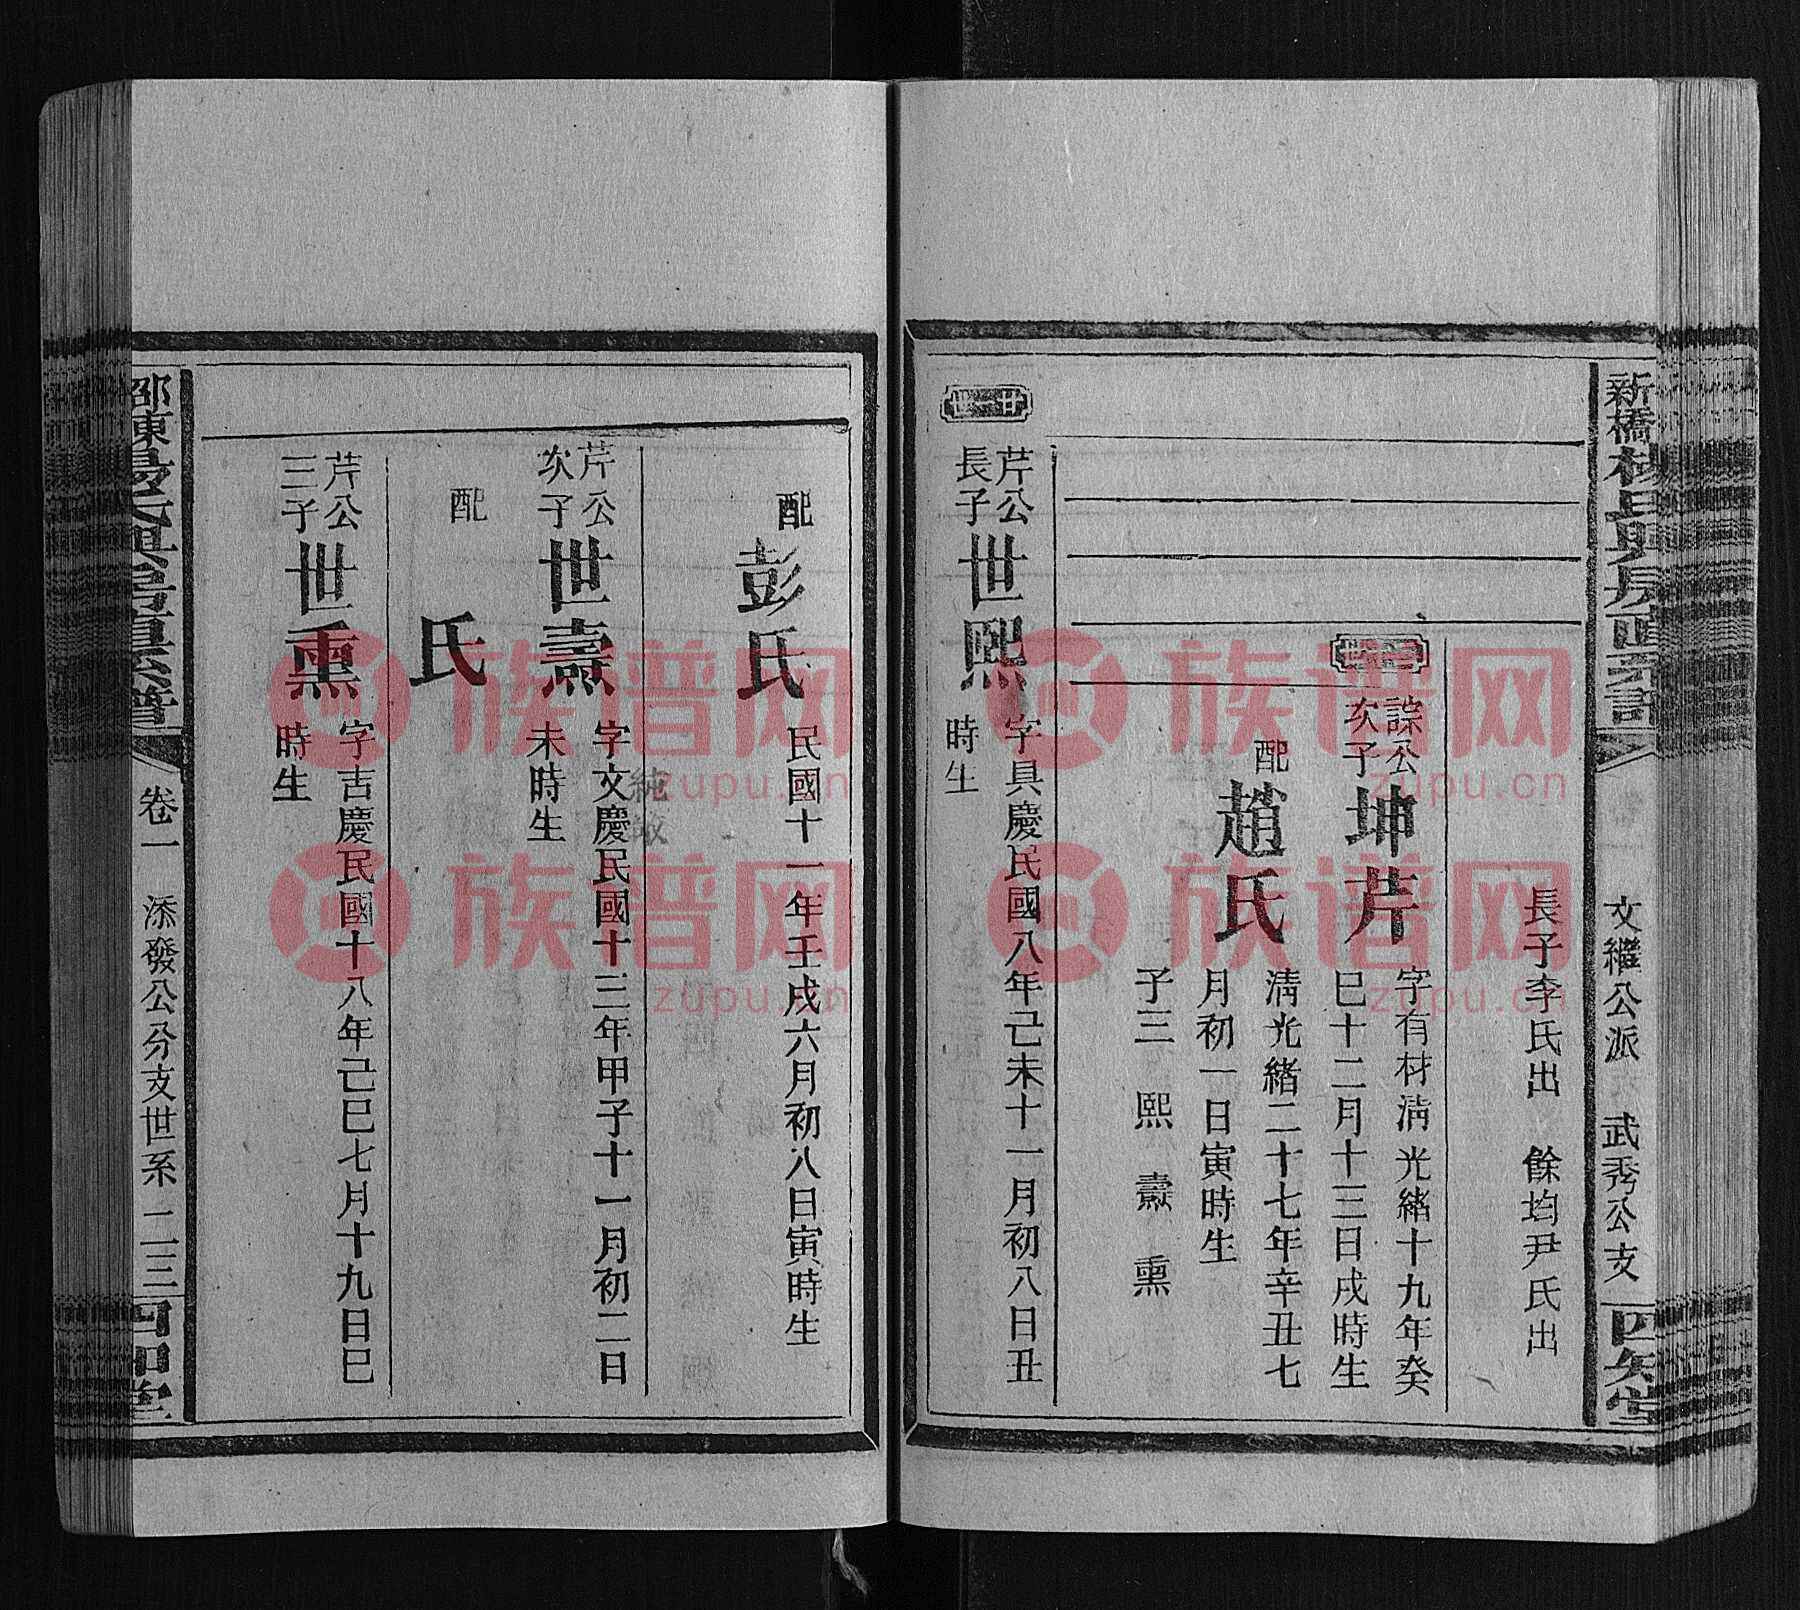 新橋
文繼公派 武秀公支
四知堂
長子李氏出 餘均尹氏出
諒公次子 坤芹 字有材淸光緒十九年癸
巳十二月十三日戌時生
配 趙氏 淸光緒二十七年辛丑七
月初一日寅時生
子三 熙 壽 熏
芹公長子 世熙 字具慶民國八年己未十一月初八日丑
時生
配 彭氏 民國十一年壬戌六月初八日寅時生
芹公次子 世壽 字文慶民國十三年甲子十一月初二日
未時生
配 氏
芹公三子 世熏 字吉慶民國十八年己巳七月十九日巳
時生
邵東
卷一 添發公分支世系 二三
四知堂
族谱网
zupu.cn
族谱网
zupu.cn
族谱网
zupu.cn
族谱网
zupu.cn